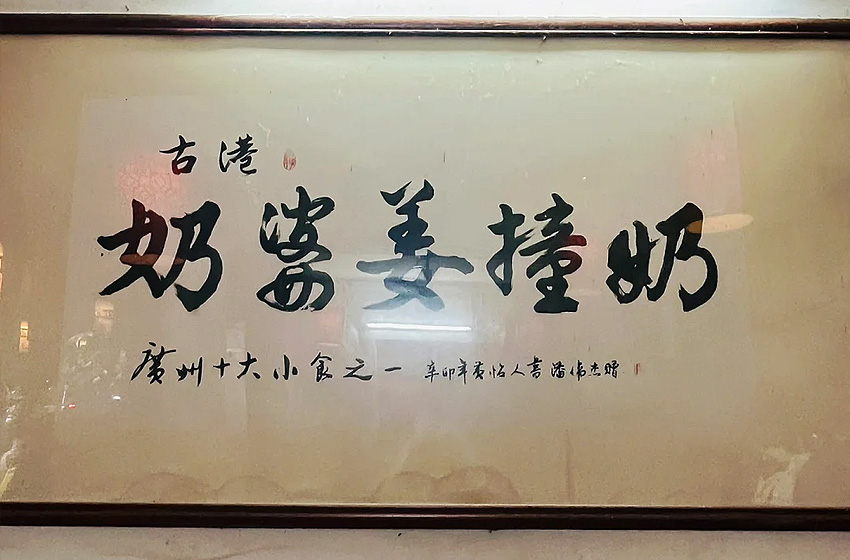 古港
奶婆姜撞奶
廣州十大小食之一 辛卯年黄怡人書潘偉杰贈